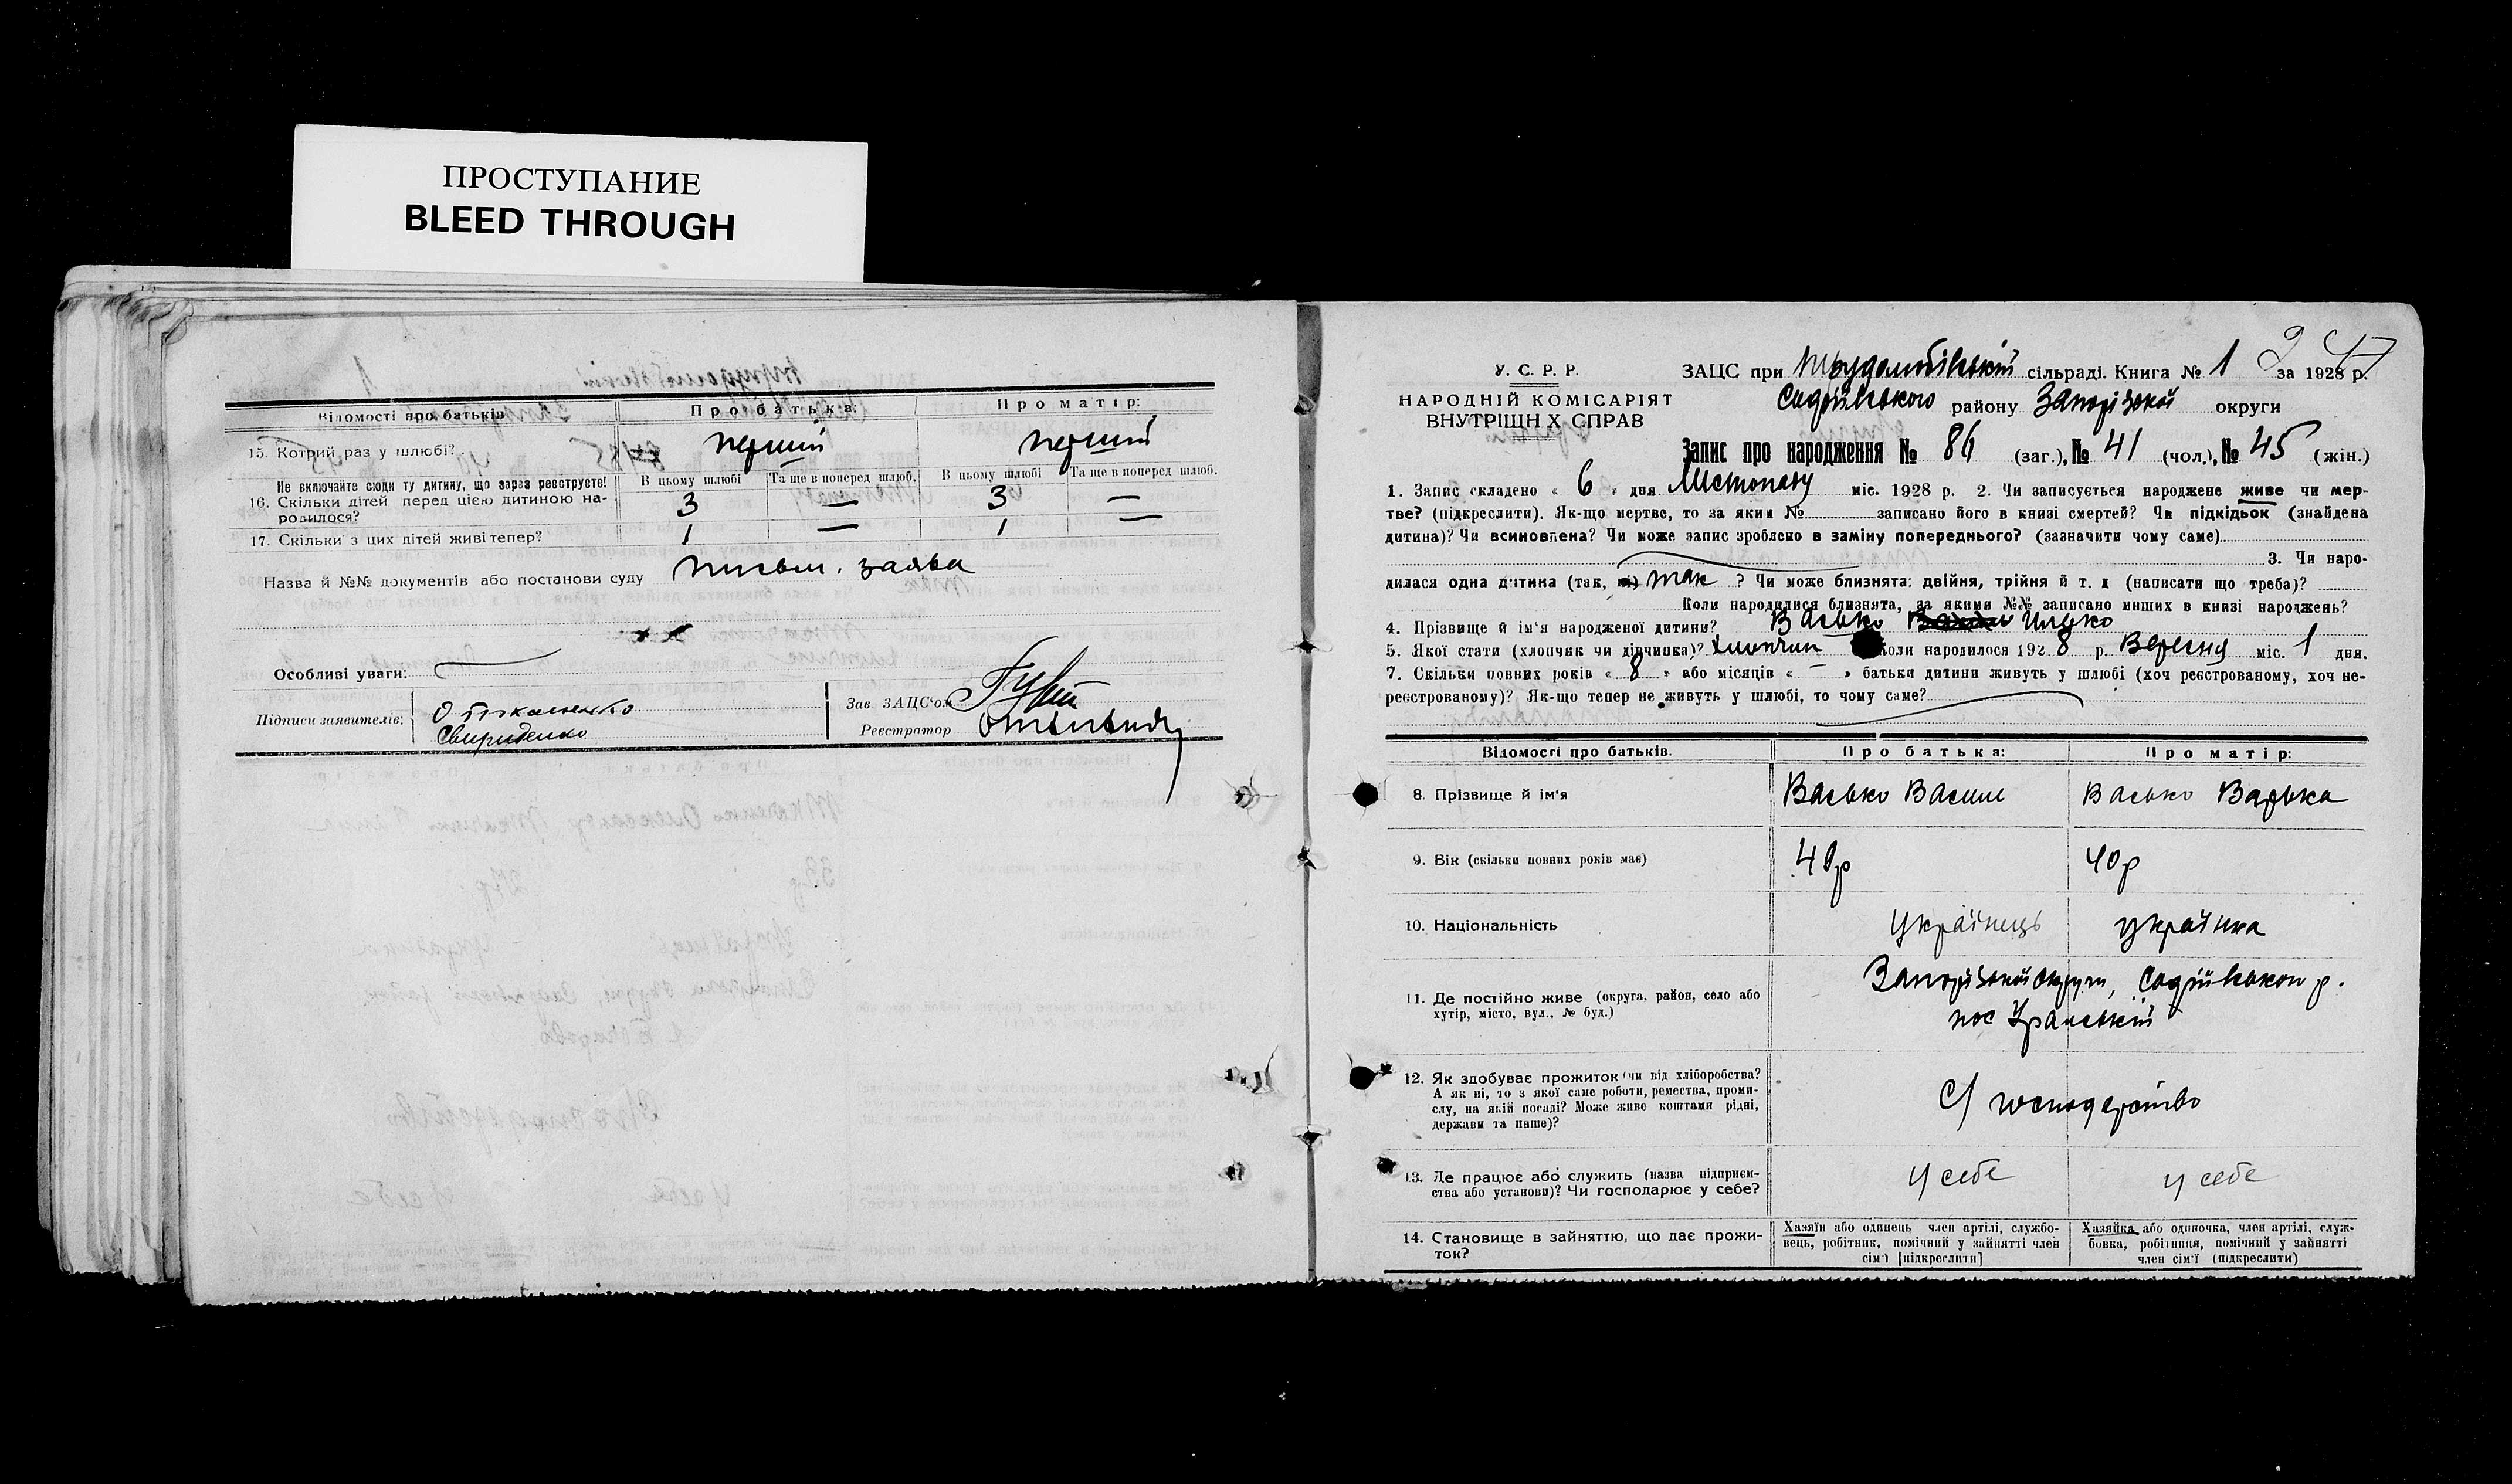 ПРОСТУПАНИЕ
BLEED THROUGH
Відомості про батьків
Про батька:
Про матір:
15. Котрий раз у шлюбі?
перший
перший
Не включайте сюди ту дитину, що зараз реєструєте!
В цьому шлюбі
Та ще в поперед шлюб.
В цьому шлюбі
Та ще в поперед шлюб.
16. Скільки дітей перед цією дитиною на-
родилося?
3 — 3 —
17. Скільки з цих дітей живі тепер?
1 — 1 —
Назва й №№ документів або постанови суду
письм. заява
Особливі уваги:
Підписи заявителів:
Свириденко
Зав ЗАЦС'ом
Реєстратор
У. С. Р. Р.
НАРОДНІЙ КОМІСАРІЯТ
ВНУТРІШН Х СПРАВ
ЗАЦС при Трудолюбівській сільраді. Книга № 1 за 1928 р.
247
району Запорізької округи
Запис про народження № 86 (заг.), № 41 (чол.), № 45 (жін.)
1. Запис складено « 6 » дня Листопаду міс. 1928 р. 2. Чи записується народжене живе чи мер-
тве? (підкреслити). Як-що мертве, то за яким № записано його в книзі смертей? Чи підкідьок (знайдена
дитина)? Чи всиновлена? Чи може запис зроблено в заміну попереднього? (зазначити чому саме)
3. Чи наро-
дилася одна дитина (так, ні) так ? Чи може близнята: двійня, трійня й т. д (написати що треба)?
Коли народилися близнята, за якими №№ записано инших в книзі народжень?
4. Прізвище й ім'я народженої дитини? Васько Илько
5. Якої стати (хлопчик чи дівчинка)? хлопчик Коли народилося 1928 р. Вересня міс. 1 дня.
7. Скільки повних років « 8 » або місяців « — » батьки дитини живуть у шлюбі (хоч реєстрованому, хоч не-
реєстрованому)? Як-що тепер не живуть у шлюбі, то чому саме?
Відомості про батьків.
Про батька:
Про матір:
8. Прізвище й ім'я
Васько Васил
Васько Варька
9. Вік (скільки повних років має)
40р
40р
10. Національність
Українець
українка
11. Де постійно живе (округа, район, село або
хутір, місто, вул., № буд.)
Запорізької округи, р.
пос
12. Як здобуває прожиток (чи від хліборобства?
А як ні, то з якої саме роботи, ремества, проми-
слу, на якій посаді? Може живе коштами рідні,
держави та инше)?
С/ господарство
13. Де працює або служить (назва підприєм-
ства або установи)? Чи господарює у себе?
у себе
у себе
14. Становище в зайняттю, що дає прожи-
ток?
Хазяїн або одинець член артілі, службо-
вець, робітник, помічний у зайнятті член
сім'ї [підкреслити]
Хазяйка або одиночка, член артілі, служ-
бовка, робітниця, помічний у зайнятті
член сім'ї (підкреслити)